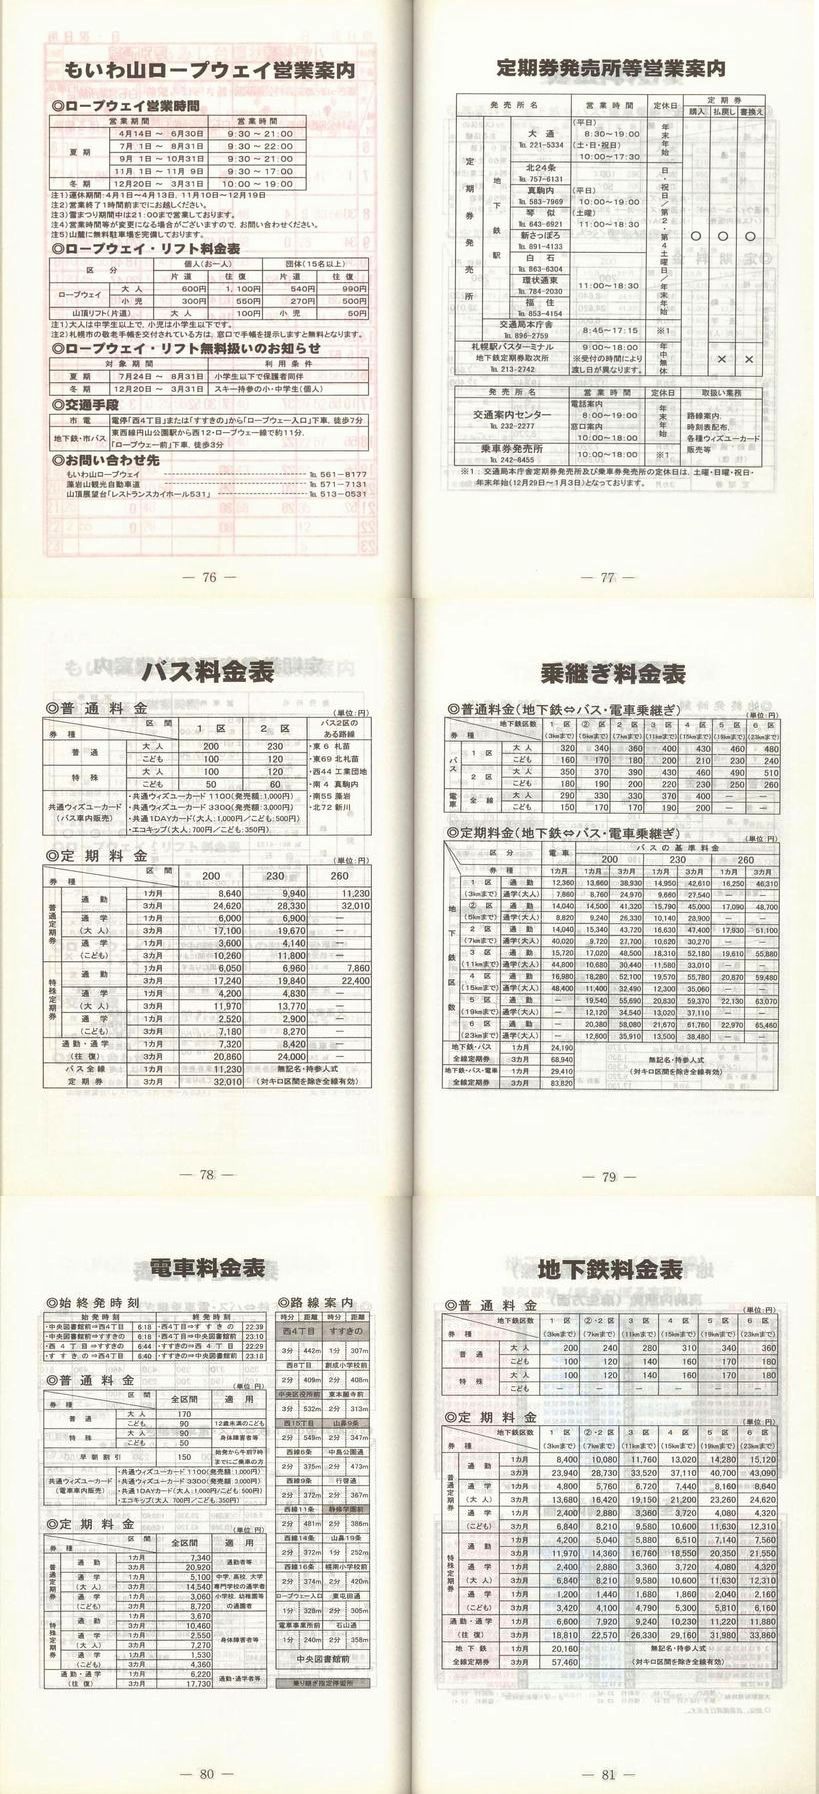 もいわ山ロープウェイ営業案内
◎ロープウェイ営業時間
営業期間 営業時間
夏期 4月14日～ 6月30日 9:30～21:00
7月 1日～ 8月31日 9:30～22:00
9月 1日～10月31日 9:30～21:00
11月 1日～11月 9日 9:30～17:00
冬期 12月20日～ 3月31日 10:00～19:00
注1)運休期間:4月1日～4月13日, 11月10日～12月19日
注2)営業終了1時間前までにお越しください。
注3)雪まつり期間中は21:00まで営業しております。
注4)営業時間等が変更になる場合がございますので, お問い合わせください。
注5)山麓に無料駐車場を完備しております。
◎ロープウェイ・リフト料金表
区分 個人(お一人) 団体(15名以上)
片道 往復 片道 往復
ロープウェイ 大人 600円 1,100円 540円 990円
小児 300円 550円 270円 500円
山頂リフト(片道) 大人 100円 小児 50円
注1)大人は中学生以上で, 小児は小学生以下です。
注2)札幌市の敬老手帳を交付されている方は, 窓口で手帳を提示しますと無料となります。
◎ロープウェイ・リフト無料扱いのお知らせ
対象期間 利用条件
夏期 7月24日～ 8月31日 小学生以下で保護者同伴
冬期 12月20日～ 3月31日 スキー持参の小・中学生(個人)
◎交通手段
市電 電停「西4丁目」または「すすきの」から「ロープウェー入口」下車, 徒歩7分
地下鉄・市バス 東西線円山公園駅から西12・ロープウェー線で約11分,
「ロープウェー前」下車, 徒歩3分
◎お問い合わせ先
もいわ山ロープウェイ ℡ 561-8177
藻岩山観光自動車道 ℡ 571-7131
山頂展望台「レストランスカイホール531」 ℡ 513-0531
— 76 —
定期券発売所等営業案内
発売所名 営業時間 定休日 定期券
購入 払戻し 書換え
定期券発売所 地下鉄駅
大通 ℡ 221-5334
(平日) 8:30～19:00
(土・日・祝日) 10:00～17:30
年末年始
北24条 ℡ 757-6131
真駒内 ℡ 583-7969
琴似 ℡ 643-6921
新さっぽろ ℡ 891-4133
(平日) 10:00～19:00
(土曜) 11:00～18:30
白石 ℡ 863-6304
環状通東 ℡ 784-2030
福住 ℡ 853-4154
11:00～18:30
日・祝日/第2・第4土曜日/年末年始
○ ○ ○
交通局本庁舎 ℡ 896-2759 8:45～17:15 ※1
札幌駅バスターミナル 9:00～18:00 年中無休
地下鉄定期券取次所 ※受付の時間により × ×
℡ 213-2742 渡し日が異なります。
発売所名 営業時間 定休日 取扱い業務
交通案内センター ℡ 232-2277
電話案内 8:00～19:00
窓口案内 10:00～18:00
年末年始
路線案内,
時刻表配布,
各種ウィズユーカード
販売等
乗車券発売所 ℡ 242-6455 10:00～18:00 ※1
※1: 交通局本庁舎定期券発売所及び乗車券発売所の定休日は, 土曜・日曜・祝日・
年末年始(12月29日～1月3日)となっております。
— 77 —
バス料金表
◎普通料金
(単位:円)
券種 区間 1区 2区 バス2区のある路線
普通 大人 200 230
こども 100 120
特殊 大人 100 120
こども 50 60
・東6 札苗
・東69 北札苗
・西44 工業団地
・南4 真駒内
・南55 藻岩
・北72 新川
共通ウィズユーカード
(バス車内販売)
・共通ウィズユーカード 1100(発売額:1,000円)
・共通ウィズユーカード 3300(発売額:3,000円)
・共通1DAYカード(大人:1,000円/こども:500円)
・エコキップ(大人:700円/こども:350円)
◎定期料金
(単位:円)
券種 区間 200 230 260
普通定期券 通勤 1カ月 8,640 9,940 11,230
3カ月 24,620 28,330 32,010
通学(大人) 1カ月 6,000 6,900 —
3カ月 17,100 19,670 —
通学(こども) 1カ月 3,600 4,140 —
3カ月 10,260 11,800 —
特殊定期券 通勤 1カ月 6,050 6,960 7,860
3カ月 17,240 19,840 22,400
通学(大人) 1カ月 4,200 4,830 —
3カ月 11,970 13,770 —
通学(こども) 1カ月 2,520 2,900 —
3カ月 7,180 8,270 —
通勤・通学(往復) 1カ月 7,320 8,420 —
3カ月 20,860 24,000 —
バス全線定期券 1カ月 11,230 無記名・持参人式
3カ月 32,010 (対キロ区間を除き全線有効)
— 78 —
乗継ぎ料金表
◎普通料金(地下鉄⇔バス・電車乗継ぎ)
(単位:円)
券種 地下鉄区数 1区 ②区 2区 3区 4区 5区 6区
(3kmまで) (5kmまで) (7kmまで) (11kmまで) (15kmまで) (19kmまで) (23kmまで)
バス 1区 大人 320 340 360 400 430 460 480
こども 160 170 180 200 210 230 240
2区 大人 350 370 390 430 460 490 510
こども 180 190 200 220 230 250 260
電車 全線 大人 290 330 330 370 400 — —
こども 150 170 170 190 200 — —
◎定期料金(地下鉄⇔バス・電車乗継ぎ)
(単位:円)
区分 電車 バスの基準料金
200 230 260
券種 1カ月 1カ月 3カ月 1カ月 3カ月 1カ月 3カ月
地下鉄区数
1区 通勤 12,360 13,660 38,930 14,950 42,610 16,250 46,310
(3kmまで) 通学(大人) 7,860 8,760 24,970 9,660 27,540 — —
②区 通勤 14,040 14,500 41,320 15,790 45,000 17,090 48,700
(5kmまで) 通学(大人) 8,820 9,240 26,330 10,140 28,900 — —
2区 通勤 14,040 15,340 43,720 16,630 47,400 17,930 51,100
(7kmまで) 通学(大人) 40,020 9,720 27,700 10,620 30,270 — —
3区 通勤 15,720 17,020 48,500 18,310 52,180 19,610 55,880
(11kmまで) 通学(大人) 44,800 10,680 30,440 11,580 33,010 — —
4区 通勤 16,980 18,280 52,100 19,570 55,780 20,870 59,480
(15kmまで) 通学(大人) 48,400 11,400 32,490 12,300 35,060 — —
5区 通勤 — 19,540 55,690 20,830 59,370 22,130 63,070
(19kmまで) 通学(大人) — 12,120 34,540 13,020 37,110 — —
6区 通勤 — 20,380 58,080 21,670 61,760 22,970 65,460
(23kmまで) 通学(大人) — 12,600 35,910 13,500 38,480 — —
地下鉄・バス 1カ月 24,190
全線定期券 3カ月 68,940 無記名・持参人式
地下鉄・バス・電車 1カ月 29,410 (対キロ区間を除き全線有効)
全線定期券 3カ月 83,820
— 79 —
電車料金表
◎始終発時刻
始発時刻 終発時刻
・中央図書館前⇒西4丁目 6:18 ・西4丁目⇒すすきの 22:39
・中央図書館前⇒すすきの 6:18 ・西4丁目⇒中央図書館前 23:10
・西4丁目⇒すすきの 6:44 ・すすきの⇒西4丁目 22:29
・すすきの⇒西4丁目 6:40 ・すすきの⇒中央図書館前 23:18
◎普通料金
(単位:円)
券種 区間 全区間 適用
普通 大人 170
こども 90 12歳未満のこども
特殊 大人 90 身体障害者等
こども 50
早朝割引 150 始発から午前7時までにご乗車の方
共通ウィズユーカード
(電車車内販売)
・共通ウィズユーカード 1100(発売額:1,000円)
・共通ウィズユーカード 3300(発売額:3,000円)
・共通1DAYカード(大人:1,000円/こども:500円)
・エコキップ(大人 700円/こども:350円)
◎定期料金
(単位:円)
券種 区間 全区間 適用
普通定期券 通勤 1カ月 7,340 通勤者等
3カ月 20,920
通学(大人) 1カ月 5,100 中学, 高校, 大学
3カ月 14,540 専門学校の通学者
通学(こども) 1カ月 3,060 小学校, 幼稚園等
3カ月 8,720 の通園者
特殊定期券 通勤 1カ月 3,670
3カ月 10,460
通学(大人) 1カ月 2,550 身体障害者等
3カ月 7,270
通学(こども) 1カ月 1,530
3カ月 4,360
通勤・通学(往復) 1カ月 6,220 通勤・通学者等
3カ月 17,730
◎路線案内
時分 距離 時分 距離
西4丁目 すすきの
3分 442m 1分 307m
西8丁目 創成小学校前
2分 409m 2分 408m
中央区役所前 東本願寺前
3分 532m 2分 313m
西15丁目 山鼻9条
2分 549m 2分 347m
西線6条 中島公園通
2分 375m 2分 473m
西線9条 行啓通
2分 372m 2分 367m
西線11条 静修学園前
2分 481m 2分 386m
西線14条 山鼻19条
2分 372m 1分 252m
西線16条 幌南小学校前
2分 374m 2分 420m
ロープウェー入口 東屯田通
1分 328m 2分 305m
電車事業所前 石山通
1分 240m 2分 358m
中央図書館前
乗り継ぎ指定停留所
— 80 —
地下鉄料金表
◎普通料金
(単位:円)
券種 地下鉄区数 1区 ②・2区 3区 4区 5区 6区
(3kmまで) (7kmまで) (11kmまで) (15kmまで) (19kmまで) (23kmまで)
普通 大人 200 240 280 310 340 360
こども 100 120 140 160 170 180
特殊 大人 100 120 140 160 170 180
こども — — — — — —
◎定期料金
(単位:円)
券種 地下鉄区数 1区 ②・2区 3区 4区 5区 6区
(3kmまで) (7kmまで) (11kmまで) (15kmまで) (19kmまで) (23kmまで)
普通定期券 通勤 1カ月 8,400 10,080 11,760 13,020 14,280 15,120
3カ月 23,940 28,730 33,520 37,110 40,700 43,090
通学(大人) 1カ月 4,800 5,760 6,720 7,440 8,160 8,640
3カ月 13,680 16,420 19,150 21,200 23,260 24,620
通学(こども) 1カ月 2,400 2,880 3,360 3,720 4,080 4,320
3カ月 6,840 8,210 9,580 10,600 11,630 12,310
特殊定期券 通勤 1カ月 4,200 5,040 5,880 6,510 7,140 7,560
3カ月 11,970 14,360 16,760 18,550 20,350 21,550
通学(大人) 1カ月 2,400 2,880 3,360 3,720 4,080 4,320
3カ月 6,840 8,210 9,580 10,600 11,630 12,310
通学(こども) 1カ月 1,200 1,440 1,680 1,860 2,040 2,160
3カ月 3,420 4,100 4,790 5,300 5,810 6,160
通勤・通学(往復) 1カ月 6,600 7,920 9,240 10,230 11,220 11,880
3カ月 18,810 22,570 26,330 29,160 31,980 33,860
地下鉄 1カ月 20,160 無記名・持参人式
全線定期券 3カ月 57,460 (対キロ区間を除き全線有効)
— 81 —